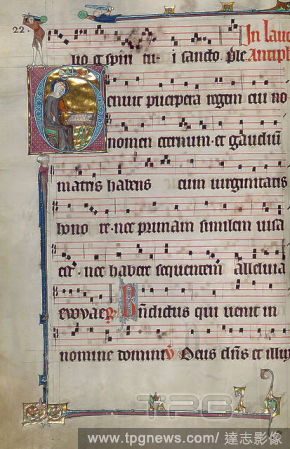 22
In lau
uo et spiri tu i sancto ple Antiph
enuit puerpera regem cui no
nomen eternum et gaudium
matris habens cum virginitatis
hono re nec primam similem visa
est nec habere sequentem alleluia
ewvae Benedictus qui venit in
nomine domini Deus dns et illu
TPG
www.tpgnews.com/ 達志影像